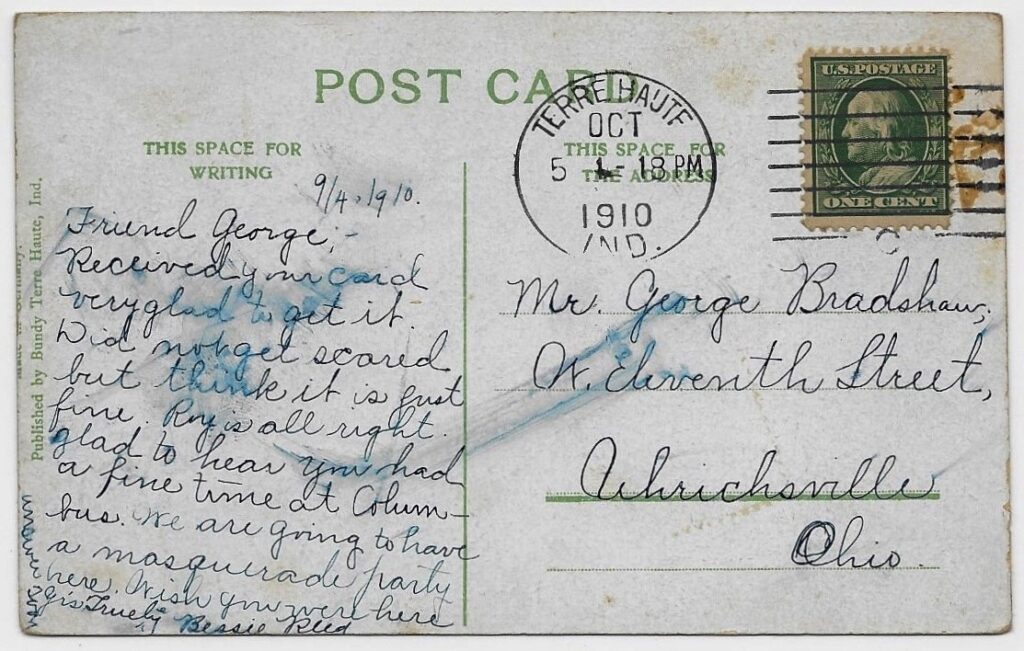 POST CARD
THIS SPACE FOR
WRITING
THIS SPACE FOR
THE ADDRESS
TERRE HAUTE
OCT
5 1-18 PM
1910
IND.
U.S. POSTAGE
ONE CENT
Published by Bundy Terre Haute, Ind.
9/4.1910.
Friend George;-
Received your card
very glad to get it.
Did not get scared
but think it is just
fine. Roy is all right.
glad to hear you had
a fine time at Colum-
bus. We are going to have
a masquerade party
here. Wish you were here
Truely Bessie Reed
Mr. George Bradshaw,
W. Eleventh Street,
Uhrichsville
Ohio.